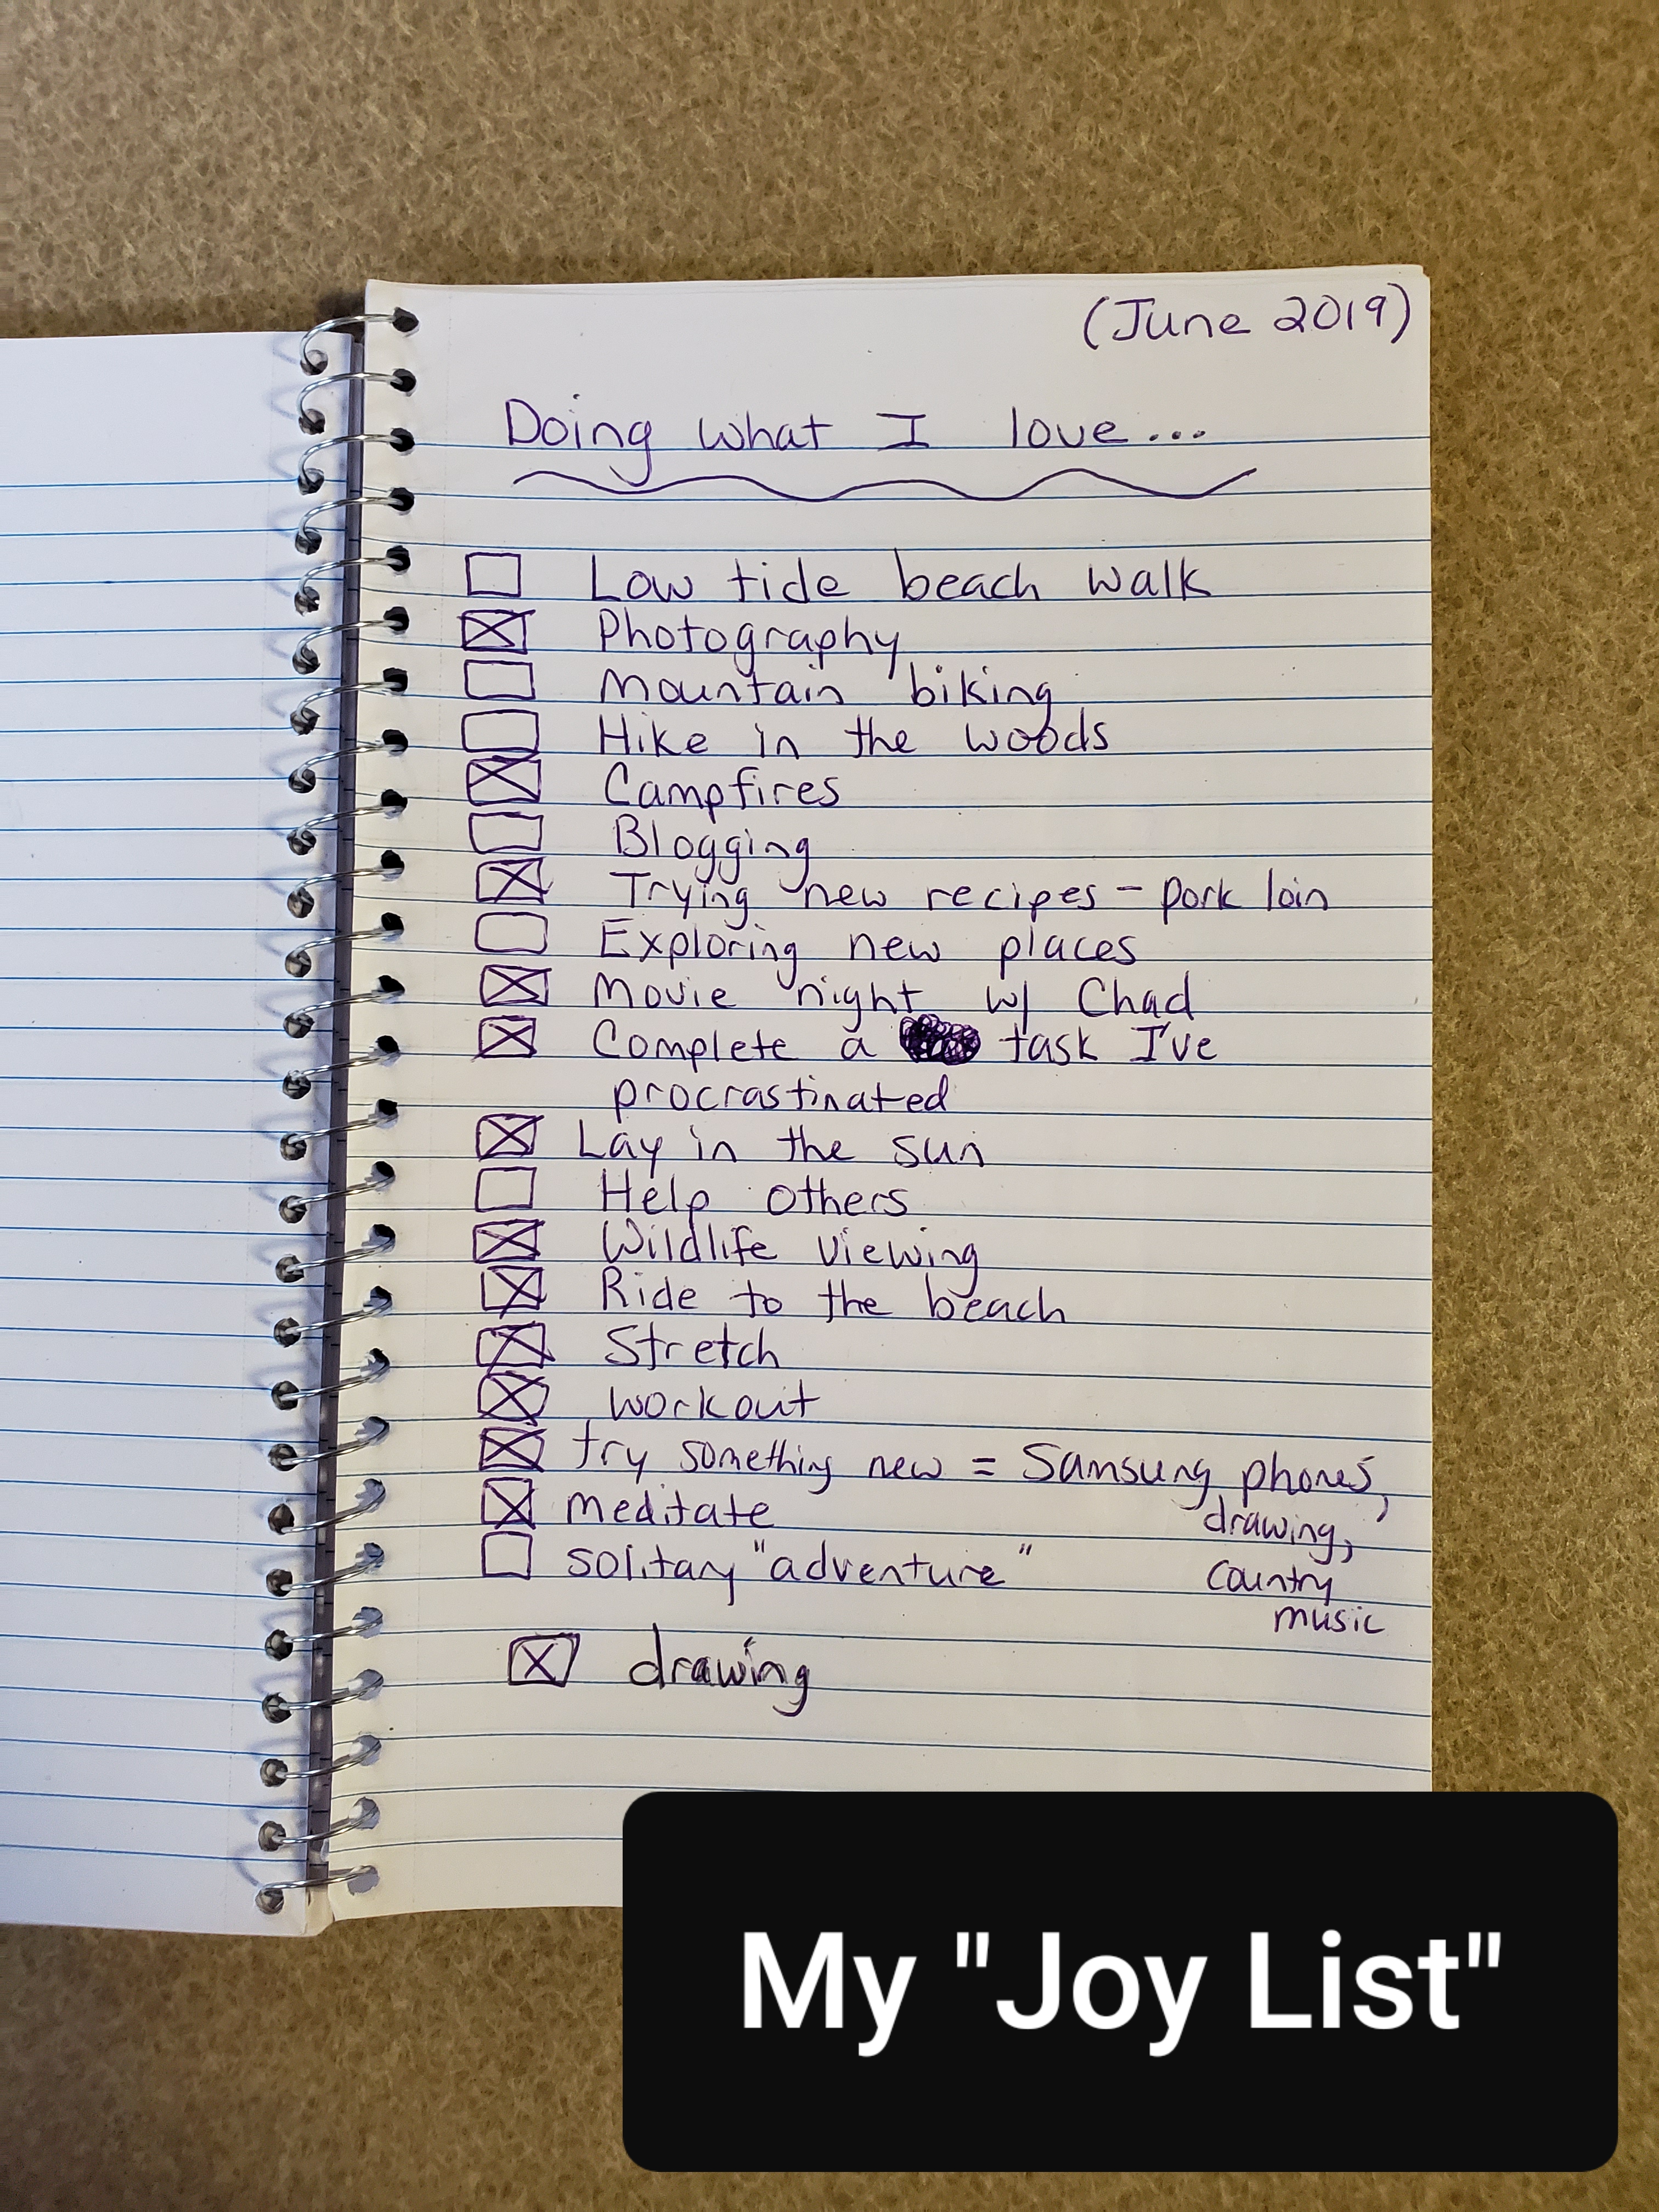 (June 2019)
Doing what I love...
Low tide beach walk
Photography
Mountain biking
Hike in the woods
Campfires
Blogging
Trying new recipes - pork loin
Exploring new places
Movie night w/ Chad
Complete a task I've
procrastinated
Lay in the sun
Help others
Wildlife viewing
Ride to the beach
Stretch
workout
try something new = Samsung phones,
meditate
drawing,
solitary "adventure"
country
music
drawing
My "Joy List"